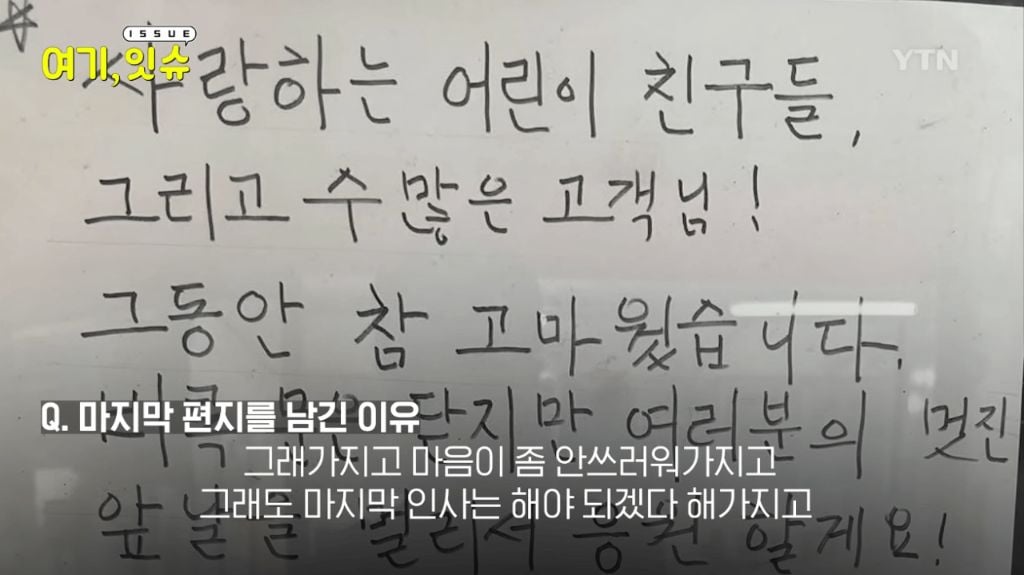 ISSUE
여기, 잇슈
YTN
사랑하는 어린이 친구들,
그리고 수많은 고객님!
그동안 참 고마웠습니다.
비록 문은 닫지만 여러분의 멋진
앞날을 멀리서 응원 할게요!
Q. 마지막 편지를 남긴 이유
그래가지고 마음이 좀 안쓰러워가지고
그래도 마지막 인사는 해야 되겠다 해가지고